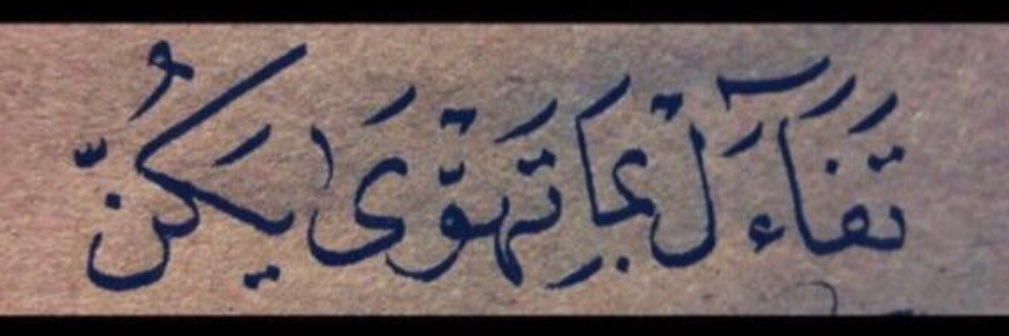 تَفَاءَلْ بِمَا تَهْوَىٰ يَكُنْ